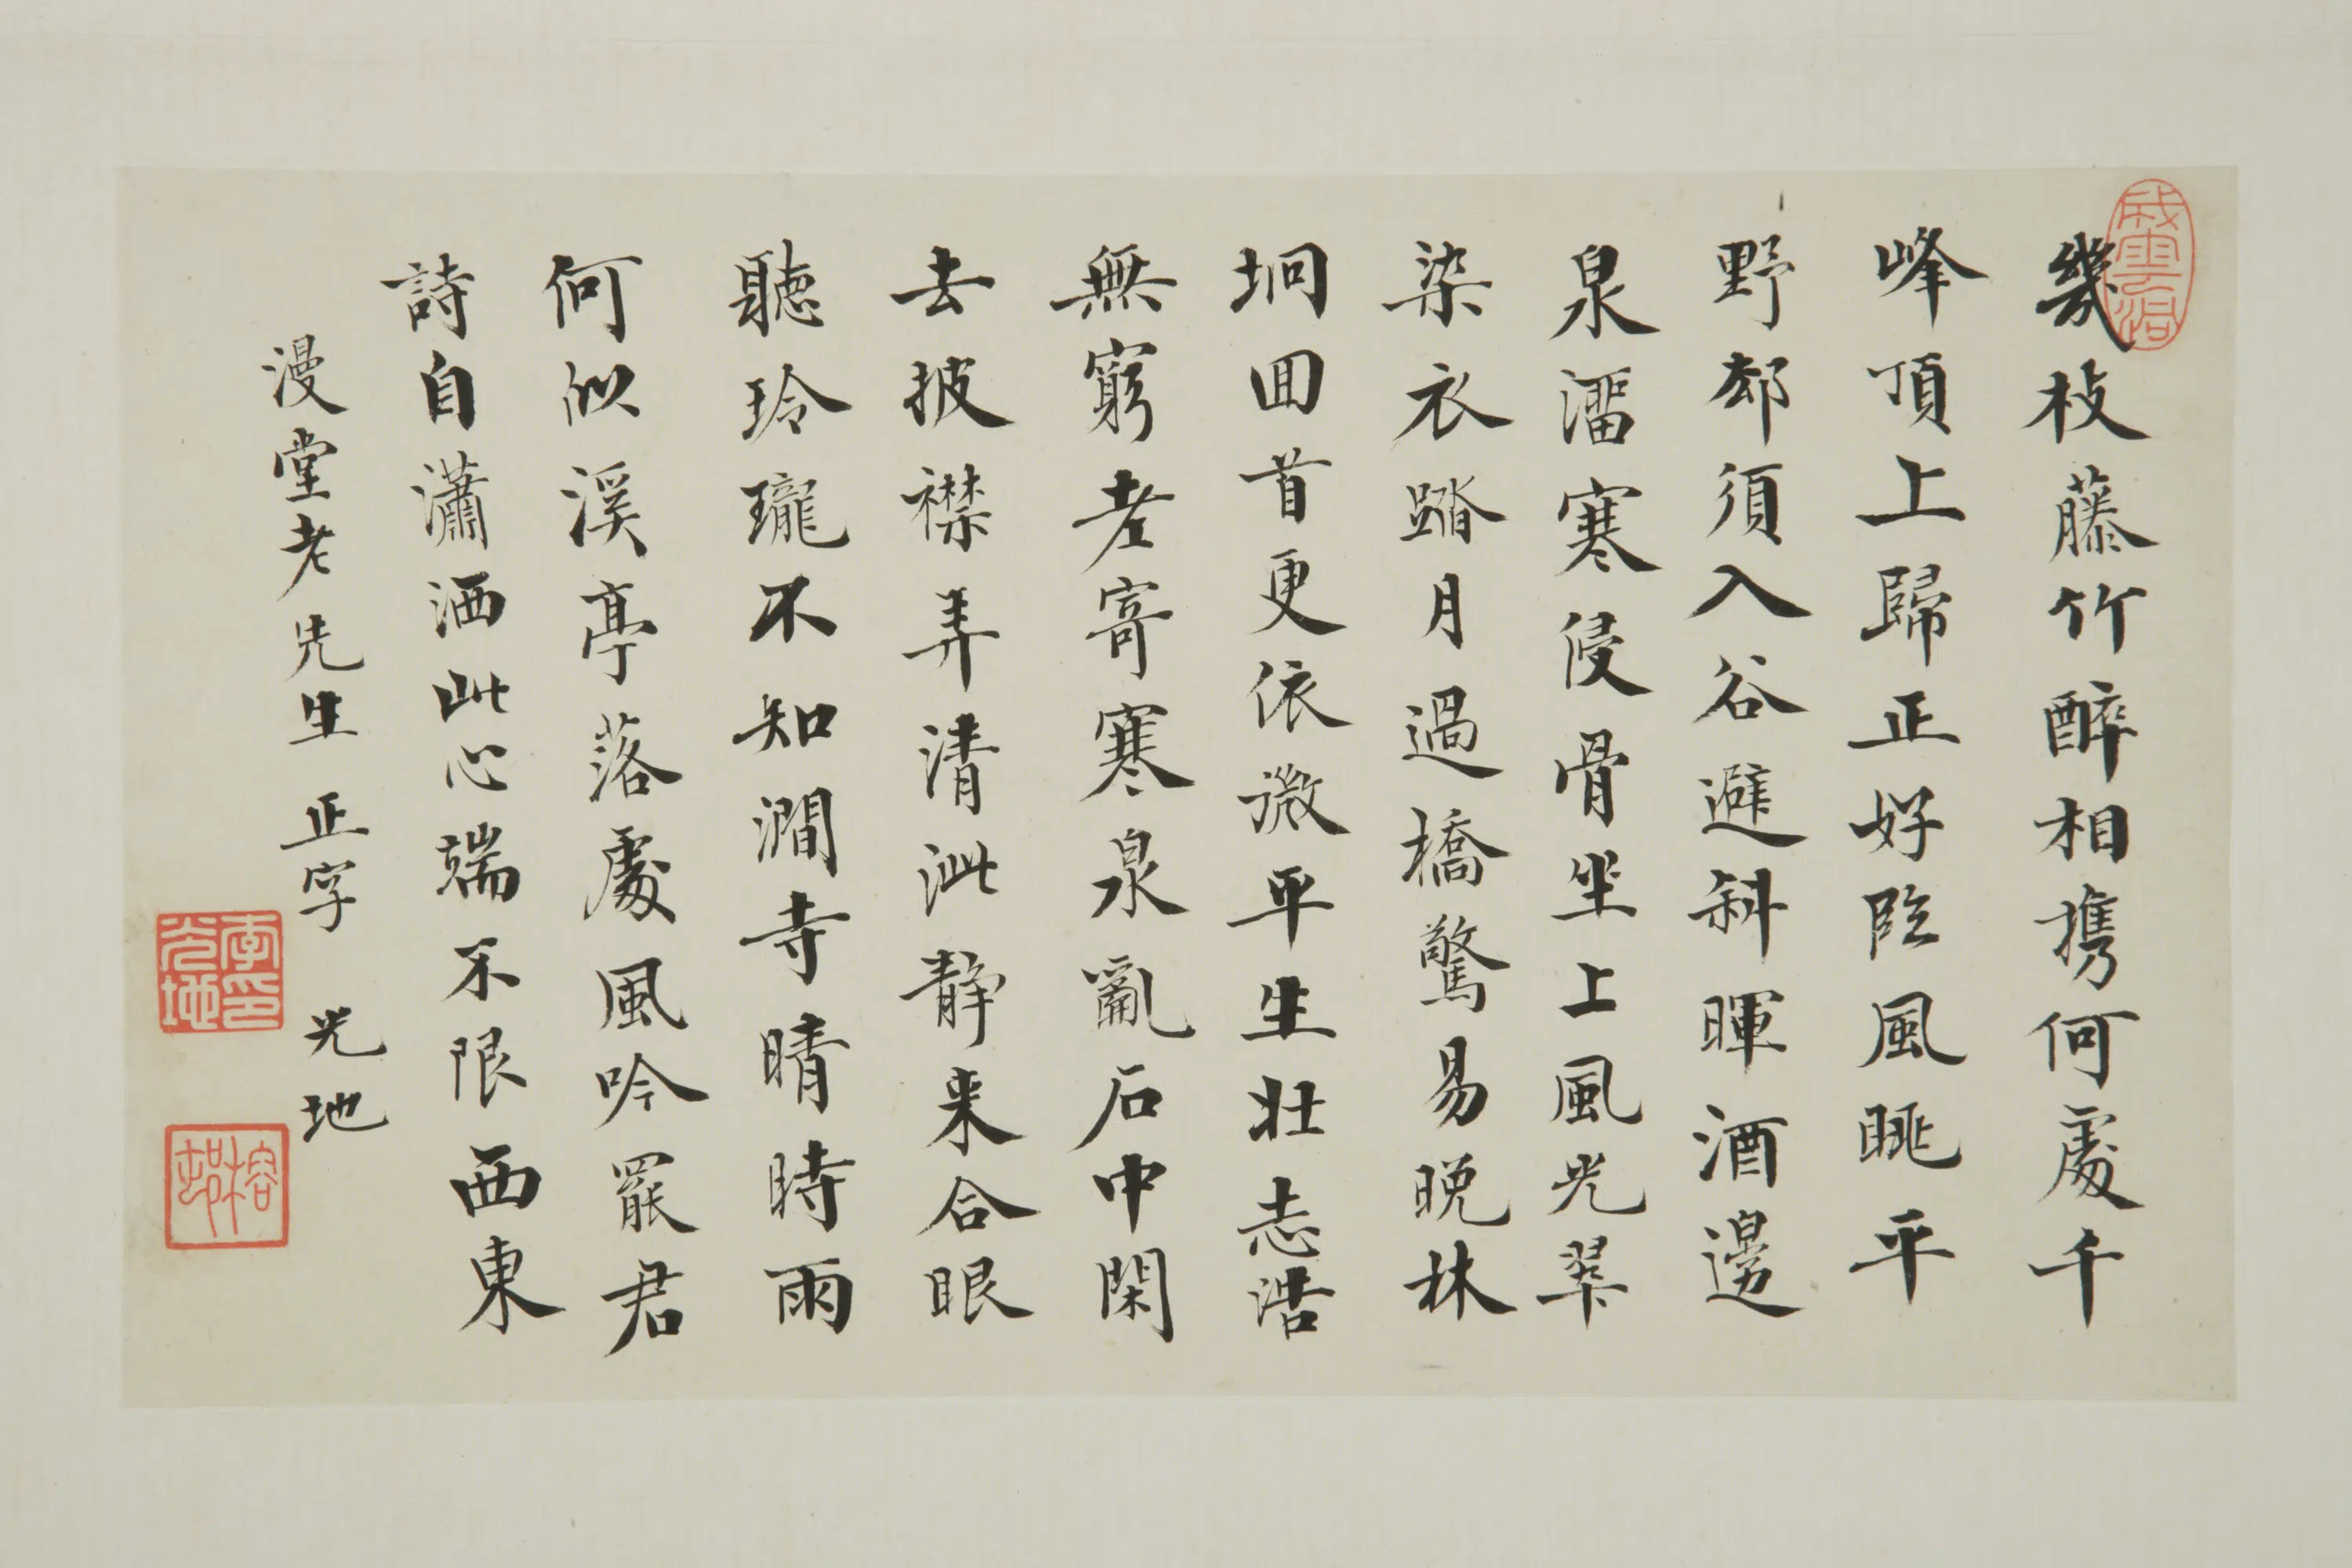 幾枝藤竹醉相携何處千
峰頂上歸正好臨風眺平
野却須入谷避斜暉酒邊
泉溜寒侵骨坐上風光翠
染衣踏月過橋驚易晚林
坰回首更依微平生壯志浩
無窮老寄寒泉亂石中閑
去披襟弄清泚靜来合眼
聽玲瓏不知澗寺晴時雨
何似溪亭落處風吟罷君
詩自瀟洒此心端不限西東
漫堂老先生 正字 光地
李光地印
榕村